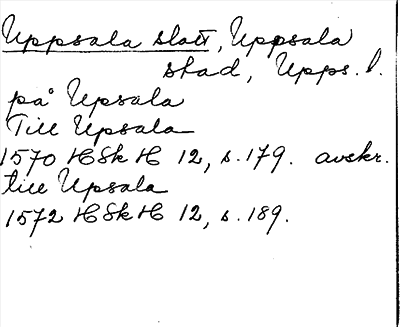 Uppsala slott, Uppsala
stad, Upps. l.
på Upsala
Till Upsala
1570 HSkH 12, s. 179. avskr.
till Upsala
1572 HSkH 12, s. 189.